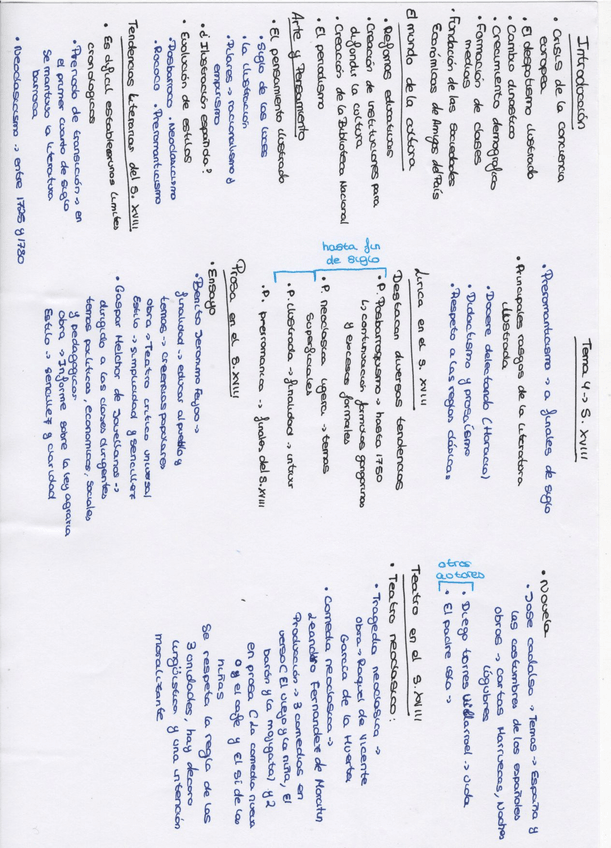 Tema 4 → S. XVIII
Introducción
• Crisis de la conciencia
europea
• El despotismo ilustrado
• Cambio dinástico
• Crecimiento demográfico
• Formación de clases
medias
• Fundación de las sociedades
Económicas de Amigos del País
El mundo de la cultura
• Reformas educativas
• Creación de instituciones para
difundir la cultura
• Creación de la Biblioteca Nacional
• El periodismo
Arte y Pensamiento
• El pensamiento ilustrado
• Siglo de las luces
• La ilustración
• Pilares → racionalismo y
empirismo
• ¿Ilustración española?
• Evolución de estilos
• Posbarroco • Neoclasicismo
• Rococo • Preromanticismo
Tendencias literarias del S. XVIII
• Es difícil establecer unos límites
cronológicos
• Periodo de transición → en
el primer cuarto de siglo
se mantuvo la literatura
barroca
• Neoclasicismo → entre 1725 y 1780
• Preromanticismo → a finales de siglo
• Principales rasgos de la literatura
ilustrada
• Docere delectando (Horacio)
• Didactismo y prosaísmo
• Respeto a las reglas clásicas
Lírica en el S. XVIII
Destacan diversas tendencias
• P. Posbarroquismo → hasta 1750
↳ continuación fórmulas gongorinas
y excesos formales
• P. neoclásica ligera → temas
superficiales
• P. ilustrada → finalidad → intruir
hasta fin
de siglo
• P. prerromanica → finales del S. XVIII
Prosa en el S. XVIII
• Ensayo
• Benito Jeronimo Feijoo →
finalidad → educar al pueblo y
temas → creencias populares
obra → Teatro crítico universal
Estilo → simplicidad y sencillez
• Gaspar Melchor de Jovellanos →
dirigido a las clases dirigentes
temas políticos, económicos, sociales
y pedagógicos
obra → Informe sobre la ley agraria
Estilo → sencillez y claridad
• Novela
• Jose cadalso → Temas → España y
las costumbres de los españoles
obras → cartas Marruecas, Noches
lúgubres
otros
autores
• Diego torres Villarroel → vida
• El padre isla →
Teatro en el S. XVIII
• Teatro neoclásico:
• Tragedia neoclásica →
obra → Raquel de Vicente
García de la Huerta
• Comedia neoclasica →
Leandro Fernandez de Moratín
Producción → 3 comedias en
verso (El viejo y la niña, El
barón y la mojigata) y 2
en prosa (La comedia nueva
o y el cafe y El Sí de las
niñas
Se respeta la regla de las
3 unidades, hay decoro
lingüístico y una intención
moralizante